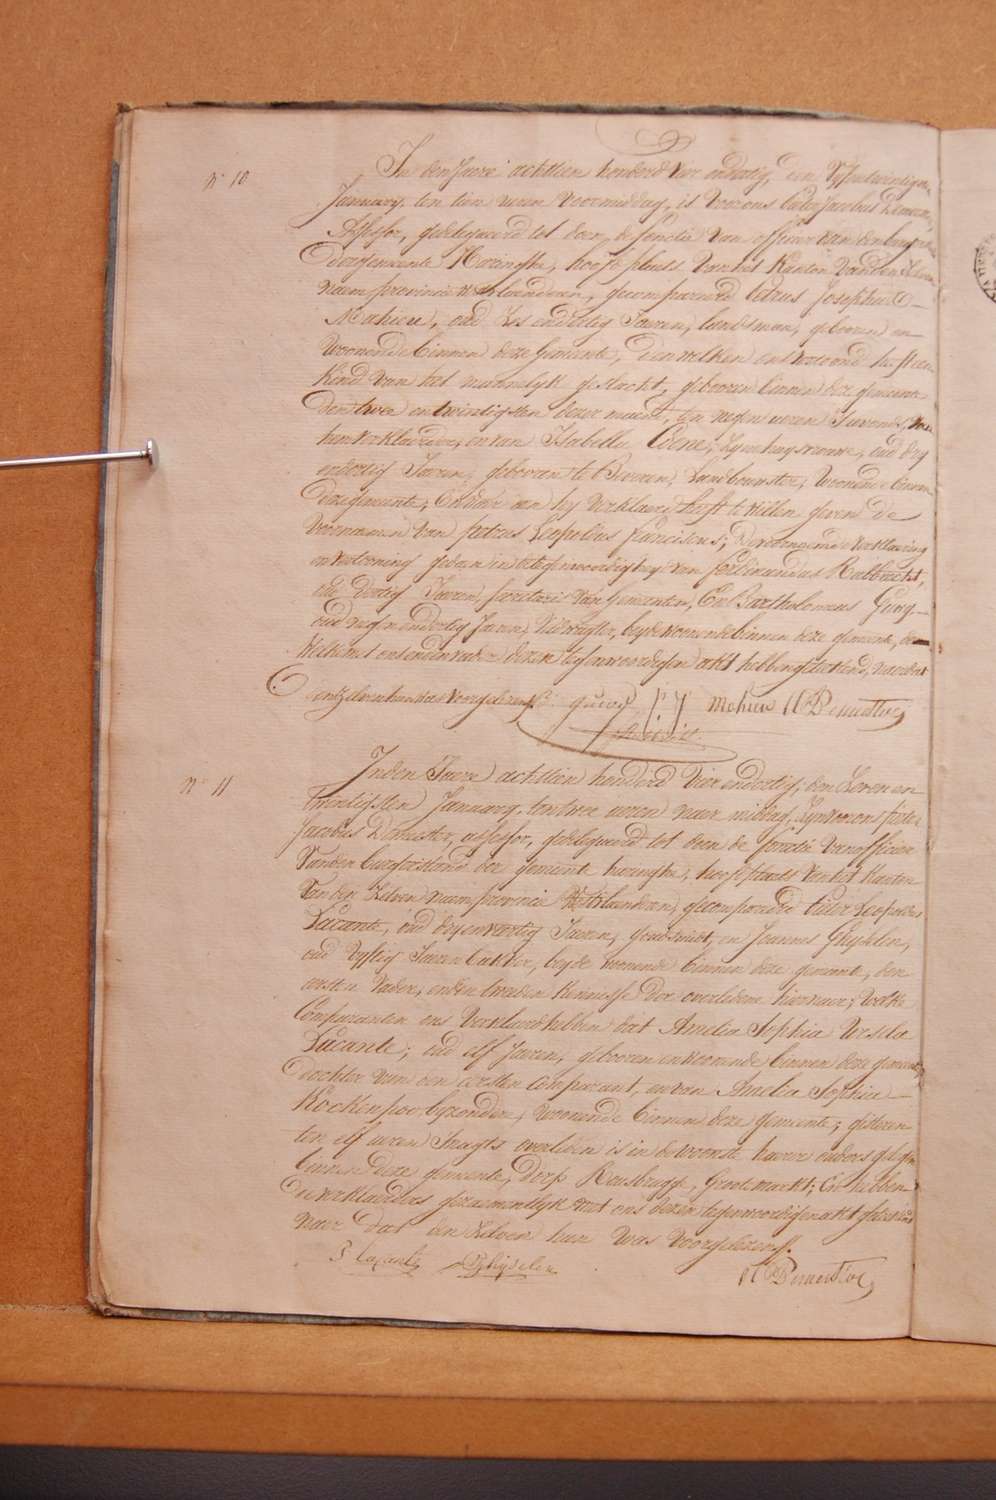 N° 10
In den Jaere achttien honderd vier en dertig, den vyfentwintigsten
January, ten tien uren voormiddag, is voor ons Pieter Jacobus Demeester,
Assessor, gedelegueerd tot doen de functie van officier van den burgerstand
der gemeente Haringhe, hoofdplaets van het kanton van den zelven
naem provincie Westvlaenderen, gecompareerd Petrus Josephus
Mahieu, oud zes en dertig Jaeren, landsman, geboren en
woonende binnen deze gemeente, den welken ons vertoond heeft een
kind van het mannelyk geslacht, gebooren binnen deze gemeente
den twee en twintigsten dezer maend, ten negen uren s'avonds, van
hem verklaerder, en van Isabelle Coene, zyne huysvrouwe, oud dry
en dertig Jaeren, geboren te Beveren, Landbouwster, woonende binnen
deze gemeente, en aen wie hy verklaerd heeft te willen geven de
voornamen van Petrus Leopoldus Franciscus; De voorengemelde verklaering
en vertooning gedaen in de tegenwoordigheyd van Ferdinandus Rubbrecht,
oud dertig Jaeren, secretaris van gemeenten, en Bartholomeus Gung
oud negen en dertig Jaeren, , beyde woonende binnen deze gemeente, de
welke met ons en den vader dezen tegenwoordigen akt hebben geteekend, naer dat
den zelven hun was voorgelezen.
P J Mahieu PJ Demeester
N° 11
In den Jaere achttien honderd vier en dertig, den zeven en
twintigsten January, ten twee uren naer middag, zyn voor ons Pieter
Jacobus Demeester, assessor, gedelegueerd tot doen de functie van officier
van den burgerstand der gemeente haringhe, hoofdplaets van het kanton
van den zelven naem provincie Westvlaenderen, gecompareerd Pieter Leopoldus
Lacante, oud dry en veertig Jaeren, Goudsmidt, en Joannes Ghyselen,
oud vyftig Jaeren bakker, beyde woonende binnen deze gemeente, den
eersten vader, en den tweeden kennisse der overledene hiernaer; welke
Comparanten ons verklaerd hebben dat Amelia Sophia Ursula
Lacante, oud elf Jaeren, gebooren en woonende binnen deze gemeente
dochter van den eersten comparant, en van Amelia Sophia
Kockenpoo byzondere, woonende binnen deze gemeente; gisteren
ten elf uren s'nagts overleden is in de woonst haerer ouders gelegen
binnen deze gemeente, dorp Rousbrugge, Groote markt; En hebben
de verklaerders gezaementlyk met ons dezen tegenwoordigen akt geteekend
naer dat den zelven hun was voorgelezen.
Lacante J Ghyselen
PJ Demeester